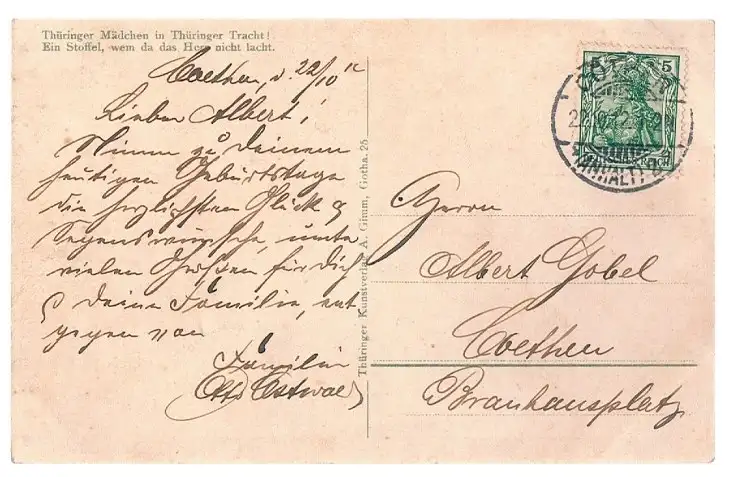 Thüringer Mädchen in Thüringer Tracht!
Ein Stoffel, wem da das Herz nicht lacht.
Coethen, d. 22/10 12
Lieber Albert!
Nimm zu Deinem
heutigen Geburtstage
die herzlichsten Glück &
Segenswünsche, unte
vielen Grüßen für Dich
& Deine Familie, ent
gegen von
Familie
Otto Ostwald
Thüringer Kunstverlag A. Gimm, Gotha. 25
5
CÖTHEN
22.10.12
(ANHALT)
REICH
Herrn
Albert Göbel
Coethen
Brauhausplatz